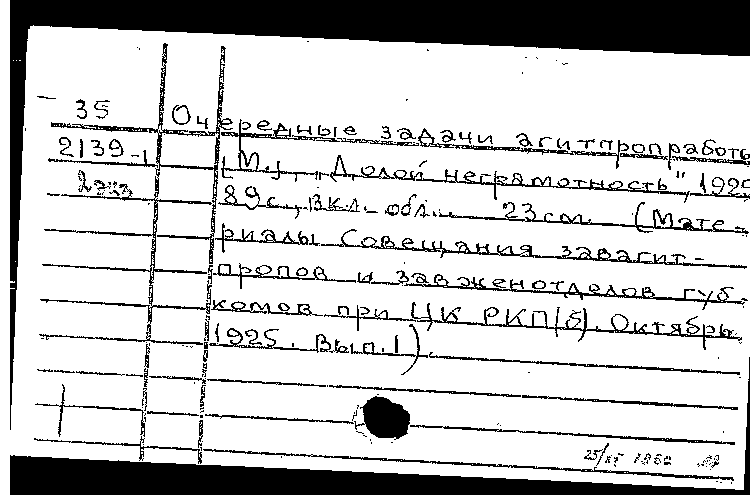 35
Очередные задачи агитпропработы
2139-1
[М.], "Долой неграмотность", 1925
2 экз
89с., вкл. обл. 23см. (Мате-
риалы Совещания завагит-
пропов и завженотделов губ.
комов при ЦК РКП(б). Октябрь
1925. Вып.1).